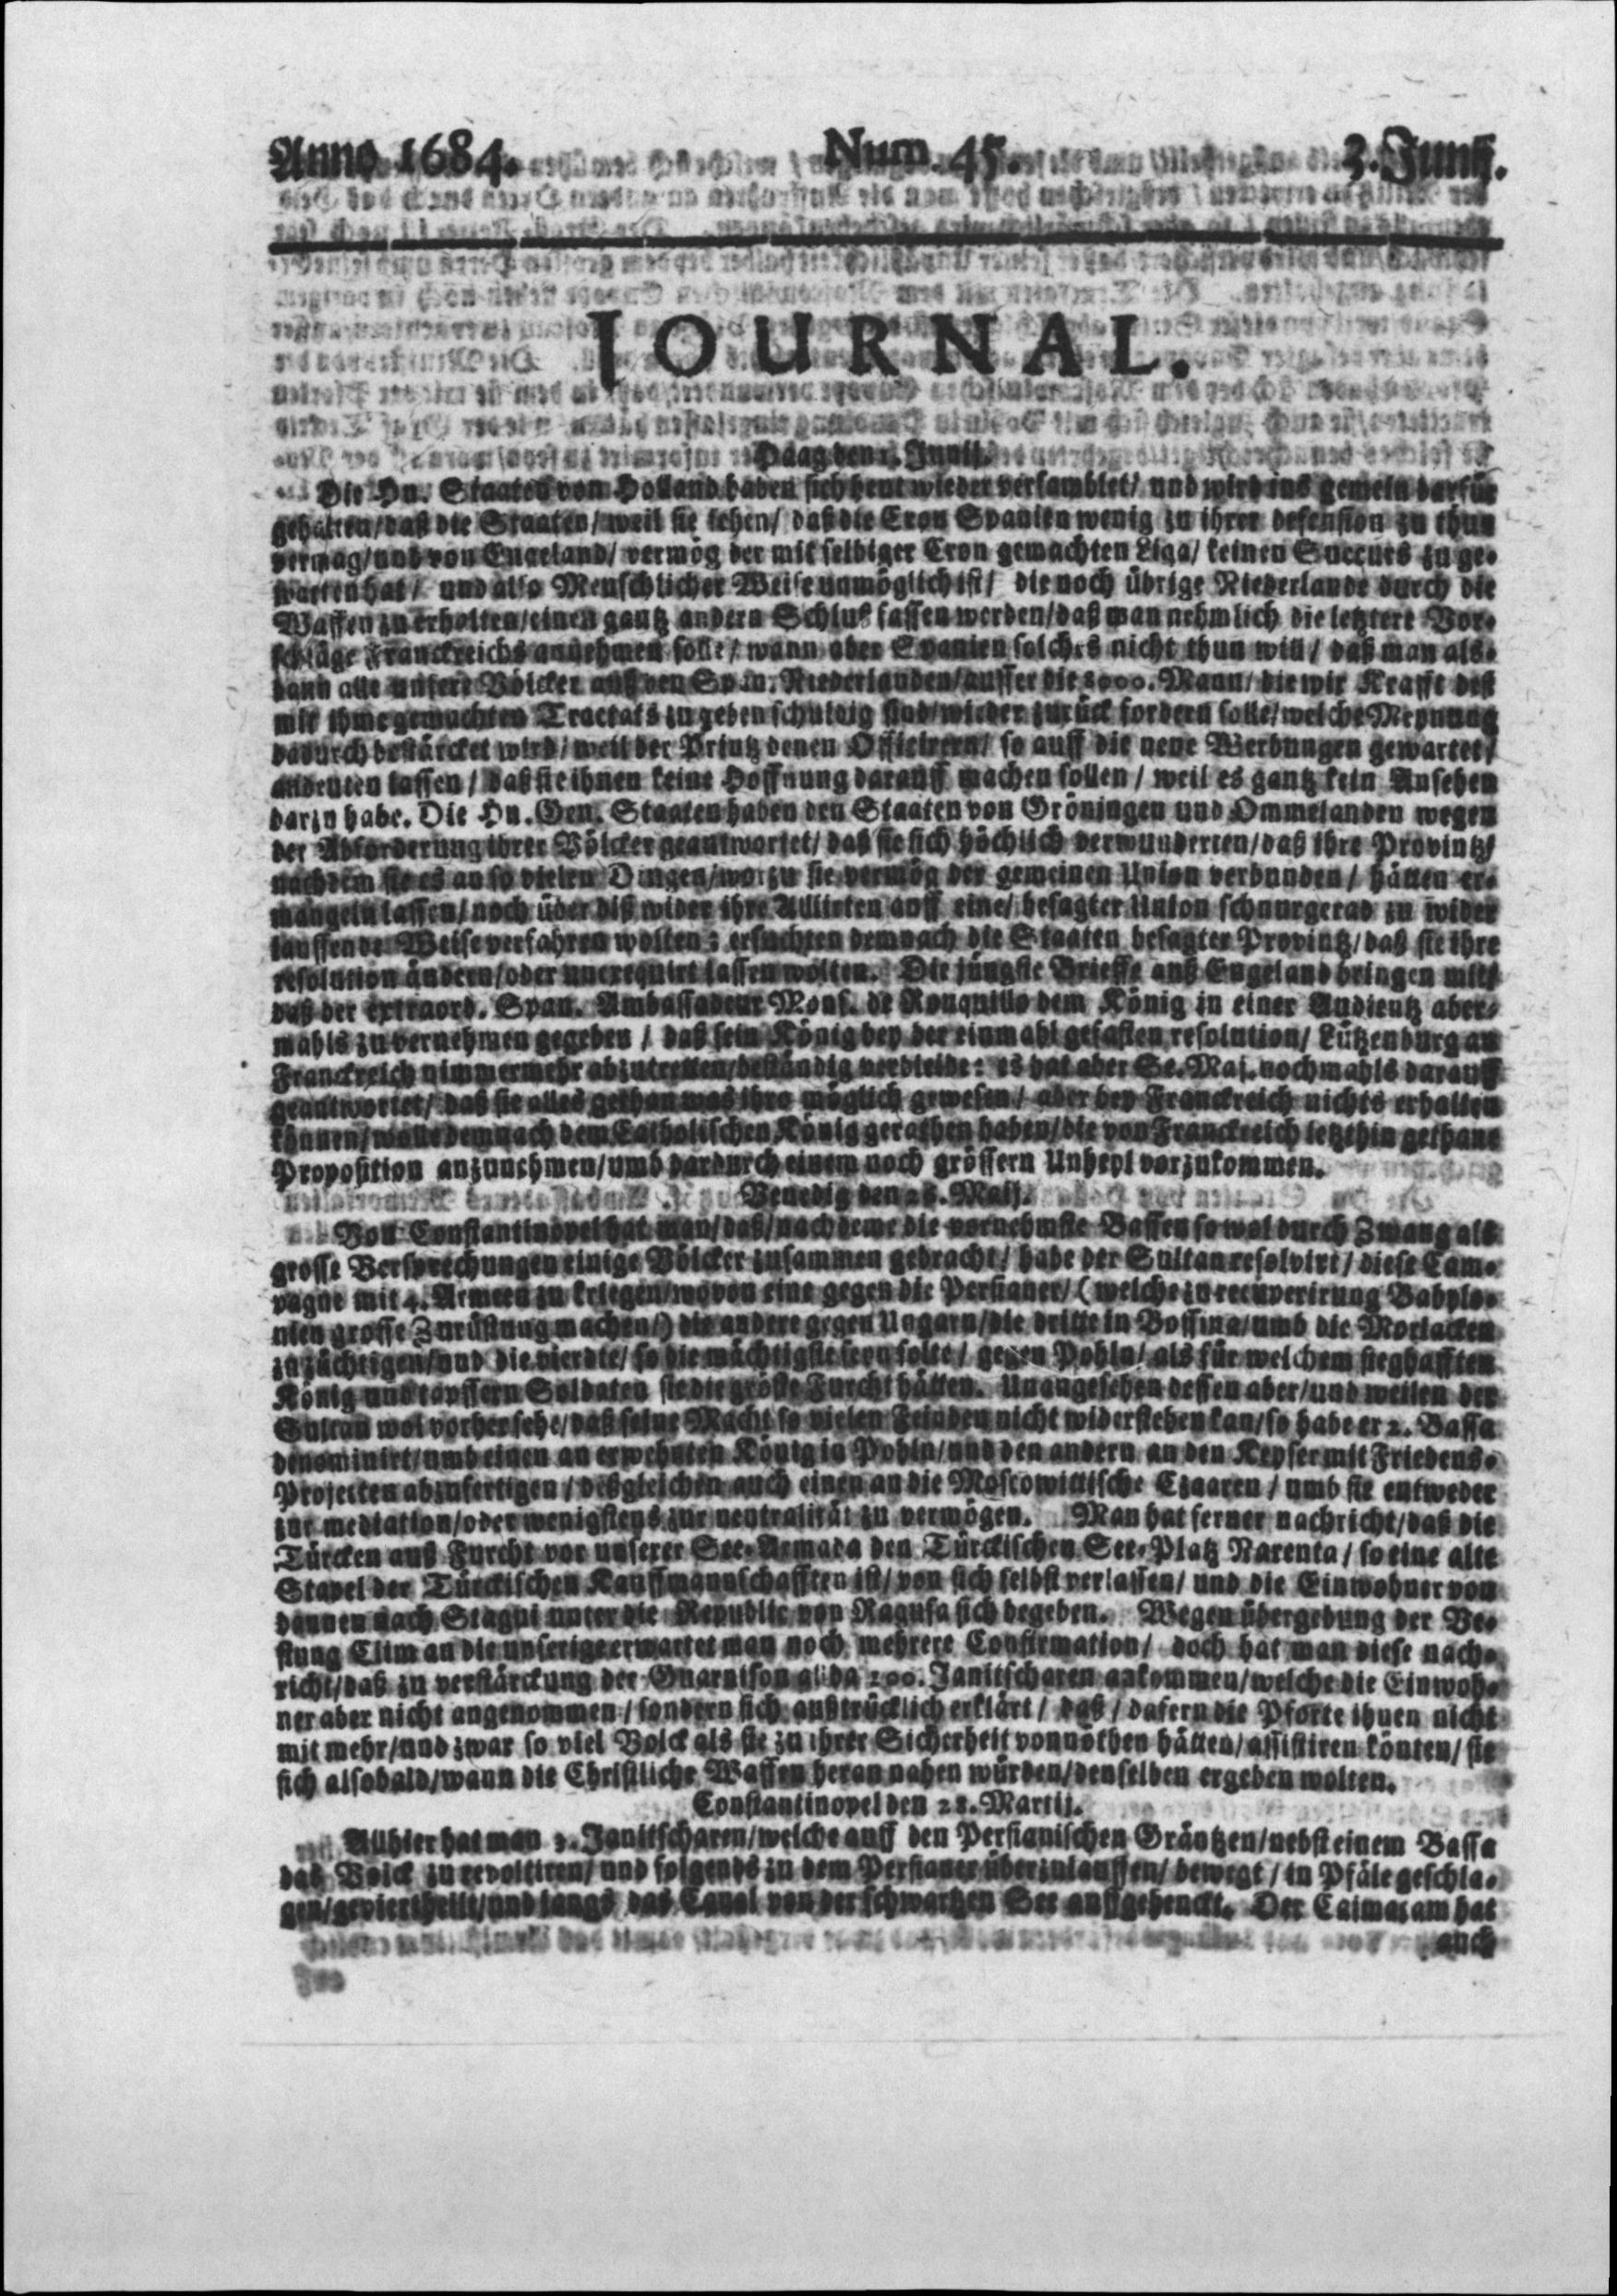 Anno 1684. Num. 45. 3. Junij.
JOURNAL.
Haag den 1. Junii.
Die Hn. Staaten von Holland haben sich heut wieder versamblet/ und wird ins gemein darfür
gehalten/daß die Staaten/ weil sie sehen/ daß die Cron Spanien wenig zu ihrer defension zu thun
vermag/und von Engeland/ vermög der mit selbiger Cron gemachten Liga/ keinen Succurs zu ge-
warten hat/ und also Menschlicher Weise unmöglich ist/ die noch übrige Niederlande durch die
Waffen zu erhalten/einen gantz andern Schluß fassen werden/daß man nehmlich die letztere Vor-
schläge Franckreichs annehmen solle/ wann aber Spanien solches nicht thun will/ daß man als-
dann alle unsere Völcker auß den Span. Niederlanden/ausser die 8000. Mann/ die wir Krafft deß
mit ihme gemachten Tractats zu geben schuldig sind/wieder zurück fordern solle/welche Meynung
dadurch bestärcket wird/ weil der Printz denen Officirern/ so auff die neue Werbungen gewartet/
andeuten lassen/ daß sie ihnen keine Hoffnung darauff machen sollen/ weil es gantz kein Ansehen
darzu habe. Die Hn. Gen. Staaten haben den Staaten von Gröningen und Ommelanden wegen
der Abforderung ihrer Völcker geantwortet/ daß sie sich höchlich verwunderten/daß ihre Provintz/
nachdem sie es an so vielen Dingen/worzu sie vermög der gemeinen Union verbunden/ hätten er-
mangeln lassen/ noch über diß wider ihre Alliirten auff eine/ besagter Union schnurgerad zu wider
lauffende Weise verfahren wolten; ersuchten demnach die Staaten besagter Provintz/ daß sie ihre
resolution ändern/oder unexequirt lassen wolten. Die jüngste Brieffe auß Engeland bringen mit/
daß der extraord. Span. Ambassadeur Mons. de Ronquillo dem König in einer Audientz aber-
mahls zu vernehmen gegeben/ daß sein König bey der einmahl gefasten resolution/ Lützenburg an
Franckreich nimmermehr abzutretten/beständig verbleibe: es hat aber Se. Maj. nochmahls darauff
geantwortet/ daß sie alles gethan was ihro möglich gewesen/ aber bey Franckreich nichts erhalten
können/ wolte demnach dem Catholischen König gerathen haben/die von Franckreich letzthin gethane
Proposition anzunehmen/umb dardurch einem noch grössern Unheyl vorzukommen.
Venedig den 26. Maij.
Von Constantinopel hat man/daß/nachdeme die vornehmste Bassen so wol durch Zwang als
grosse Versprechungen einige Völcker zusammen gebracht/ habe der Sultan resolvirt/ diese Cam-
pagne mit 4. Armeen zu kriegen/wovon eine gegen die Persianer/ (welche zu recuperirung Babylo-
nien grosse Zurüstung machen/) die andere gegen Ungarn/die dritte in Bossina/umb die Morlacken
zu züchtigen/und die vierdte/ so die mächtigste seyn solte/ gegen Pohln/ als für welchem sieghafften
König und tapffern Soldaten sie die gröste Furcht hätten. Unangesehen dessen aber/und weilen der
Sultan wol vorhersehe/daß seine Macht so vielen Feinden nicht widerstehen kan/so habe er 2. Bassa
denominirt/umb einen an erwehnten König in Pohln/und den andern an den Keyser mit Friedens-
Projecten abzufertigen/ deßgleichen auch einen an die Moscowittische Czaaren/ umb sie entweder
zur mediation/oder wenigstens zur neutralität zu vermögen. Man hat ferner nachricht/daß die
Türcken auß Furcht vor unserer See-Armada den Türckischen See-Platz Narenta/ so eine alte
Stapel der Türckischen Kauffmannschafften ist/ von sich selbst verlassen/ und die Einwohner von
dannen nach Stagni unter die Republic von Ragusa sich begeben. Wegen übergebung der Ve-
stung Clim an die unserige erwartet man noch mehrere Confirmation/ doch hat man diese nach-
richt/daß zu verstärckung der Guarnison alda 200. Janitscharen ankommen/welche die Einwoh-
ner aber nicht angenommen/ sondern sich außtrücklich erklärt/ daß/ dafern die Pforte ihnen nicht
mit mehr/und zwar so viel Volck als sie zu ihrer Sicherheit vonnöthen hätten/assistiren könten/ sie
sich alsobald/wann die Christliche Waffen heran nahen würden/denselben ergeben wolten.
Constantinopel den 28. Martij.
Allhier hat man 3. Janitscharen/welche auff den Persianischen Gräntzen/nebst einem Bassa
das Volck zu revoltiren/ und folgends zu dem Persianer überzulauffen/ bewegt/ in Pfäle geschla-
gen/geviertheilt/und langs das Canal von der schwartzen See auffgehenckt. Der Caimacam hat
auch